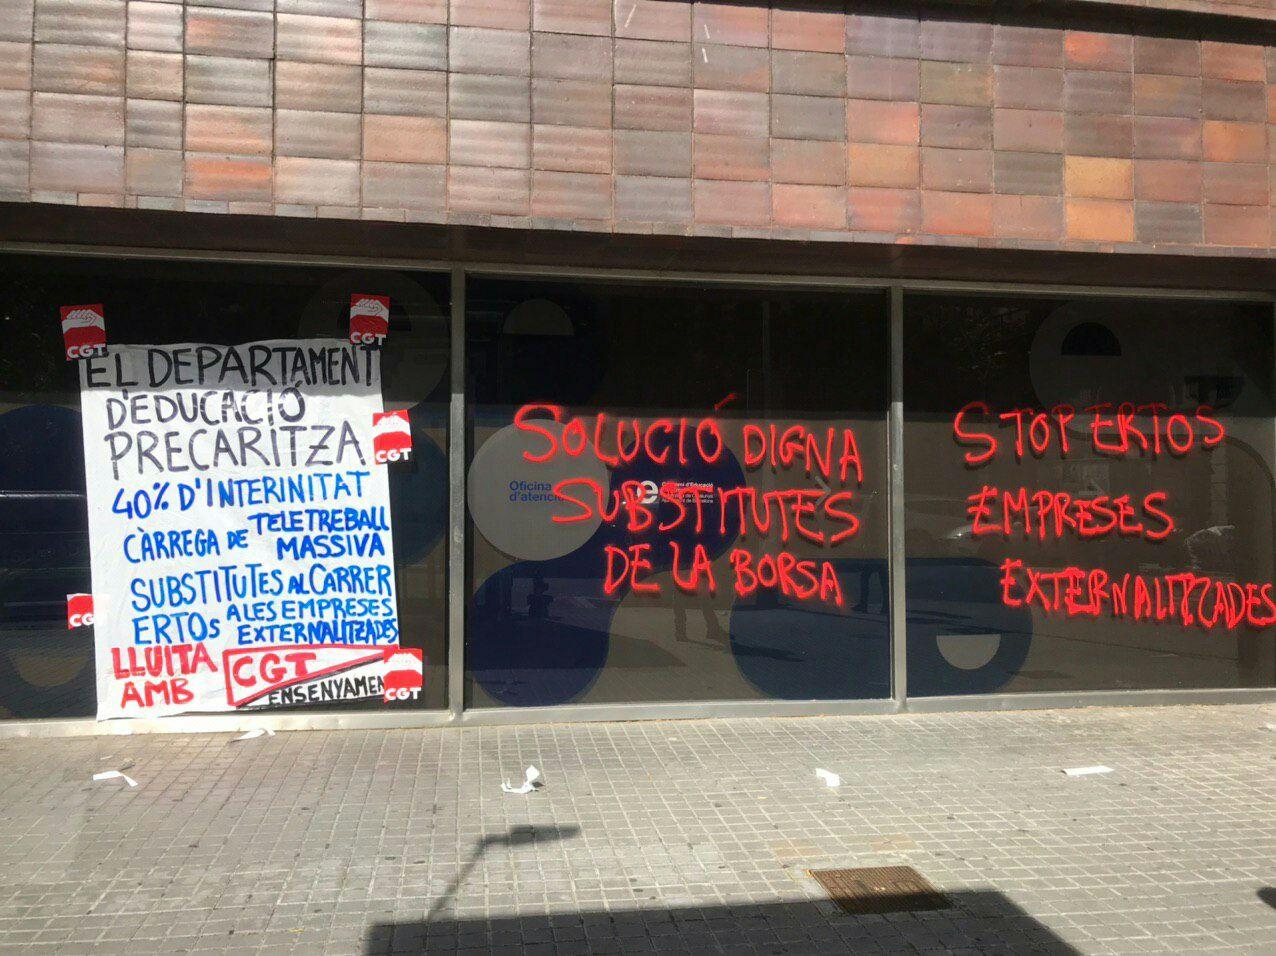 CGT
CGT
EL DEPARTAMENT
D'EDUCACIÓ
PRECARITZA
CGT
40% D'INTERINITAT
CÀRREGA DE TELETREBALL
MASSIVA
SUBSTITUTES AL CARRER
ERTOS A LES EMPRESES
EXTERNALITZADES
LLUITA
AMB
CGT
ENSENYAMEN
CGT
CG
SOLUCIÓ DIGNA
SUBSTITUTES
DE LA BORSA
Oficina
d'atenció
STOP ERTOS
EMPRESES
EXTERNALITZADES